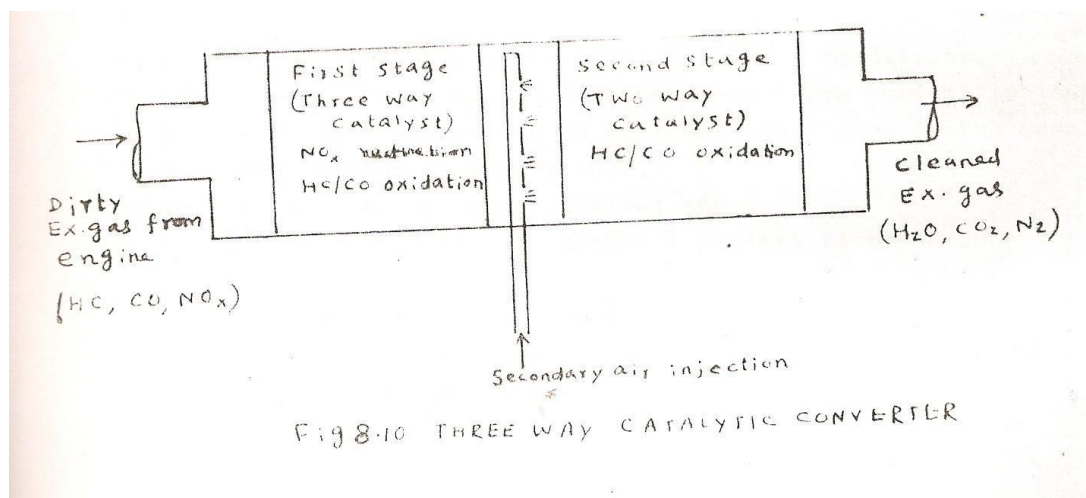 First stage
(Three way
catalyst)
NOx
HC/CO oxidation
Second stage
(Two way
catalyst)
HC/CO oxidation
Dirty
Ex.gas from
engine
(HC, CO, NOx)
cleaned
Ex. gas
(H2O, CO2, N2)
Secondary air injection
Fig 8.10 THREE WAY CATALYTIC CONVERTER